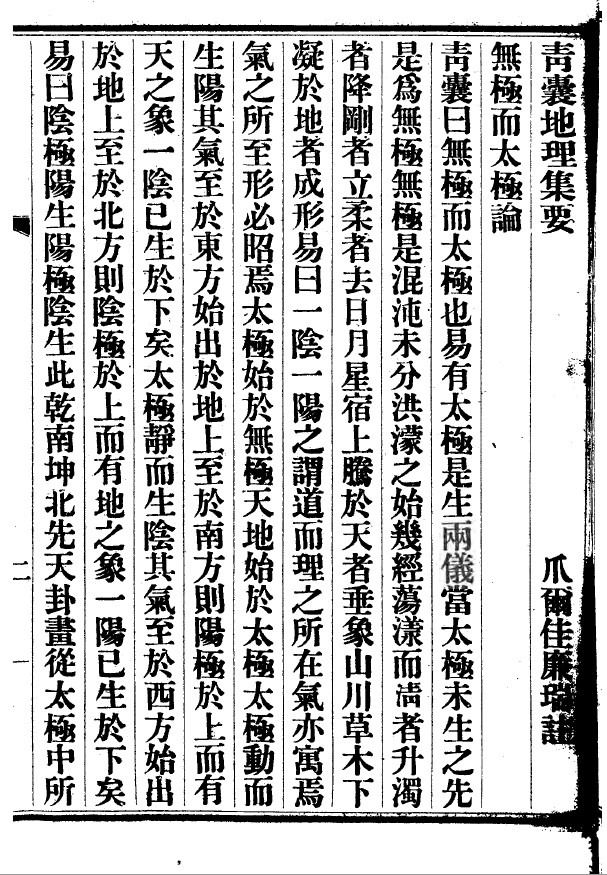 青囊地理集要　爪爾佳廉瑞註
無極而太極論
青囊曰無極而太極也易有太極是生兩儀當太極未生之先
是爲無極無極是混沌未分洪濛之始幾經蕩漾而淸者升濁
者降剛者立柔者去日月星宿上騰於天者垂象山川草木下
凝於地者成形易曰一陰一陽之謂道而理之所在氣亦寓焉
氣之所至形必昭焉太極始於無極天地始於太極太極動而
生陽其氣至於東方始出於地上至於南方則陽極於上而有
天之象一陰已生於下矣太極靜而生陰其氣至於西方始出
於地上至於北方則陰極於上而有地之象一陽已生於下矣
易曰陰極陽生陽極陰生此乾南坤北先天卦畫從太極中所
二
一